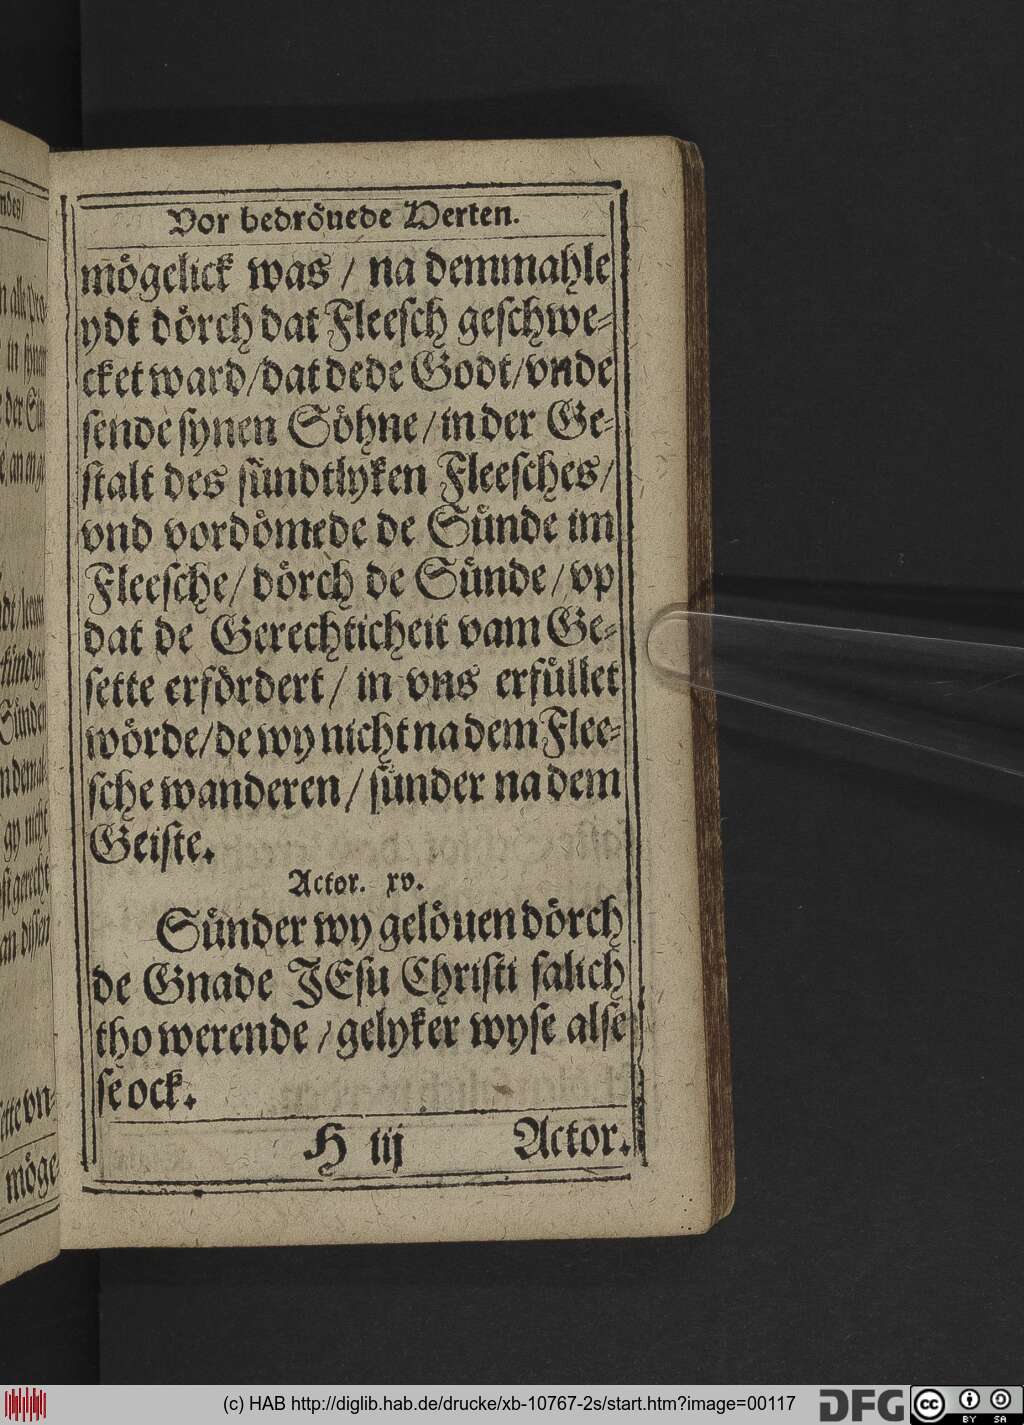 Vor bedröuede Herten.
mögelick was / na demmahle
ydt dörch dat Fleesch geschwe-
cket ward / dat dede Godt / vnde
sende synen Söhne / in der Ge-
stalt des sündtlyken Fleesches /
vnd vordömede de Sünde im
Fleesche / dörch de Sünde / vp
dat de Gerechticheit vam Ge-
sette erfördert / in vns erfüllet
wörde / de wy nicht na dem Flee-
sche wanderen / sünder na dem
Geiste.
Actor. xv.
Sünder wy gelöuen dörch
de Gnade JEsu Christi salich
tho werende / gelyker wyse alse
se ock.
H iij Actor.
ette vn-
möge-
(c) HAB http://diglib.hab.de/drucke/xb-10767-2s/start.htm?image=00117
DFG
cc
BY SA